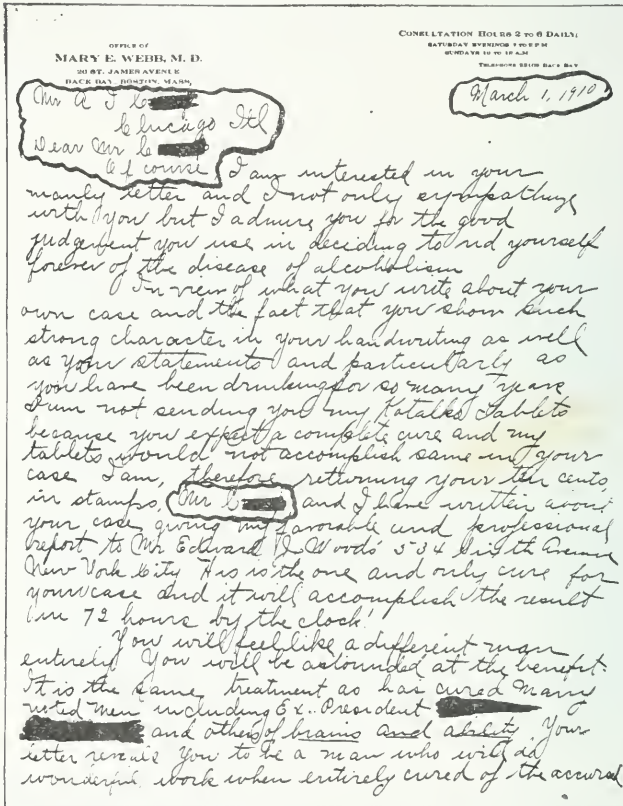 OFFICE OF
MARY E. WEBB, M. D.
20 ST. JAMES AVENUE
BACK BAY, BOSTON, MASS,
CONSULTATION HOURS 2 TO 6 DAILY;
SATURDAY EVENINGS 7 TO 8 P M
SUNDAYS 10 TO 12 A M
TELEPHONE BACK BAY
March 1, 1910
Mr A J C
Chicago Ill
Dear Mr C
Of course I am interested in your
manly letter and I not only sympathize
with you but I admire you for the good
judgement you use in deciding to rid yourself
forever of the disease of alcoholism
In view of what you write about your
own case and the fact that you show such
strong character in your handwriting as well
as your statements and particularly as
you have been drinking for so many years
I am not sending you my Kotalko Tablets
because you expect a complete cure and my
tablets would not accomplish same in your
case I am, therefore returning your ten cents,
in stamps, Mr C and I have written about
your case giving my favorable and professional
report to Mr Edward J Woods 534 Sixth Avenue
New York City His is the one and only cure for
your case and it will accomplish the result
in 72 hours by the clock!
You will feel like a different man
entirely You will be astounded at the benefit.
It is the same treatment as has cured many
noted men including Ex. President
and others of brains and ability. Your
letter reveals you to be a man who will do
wonderful work when entirely cured of the accursed